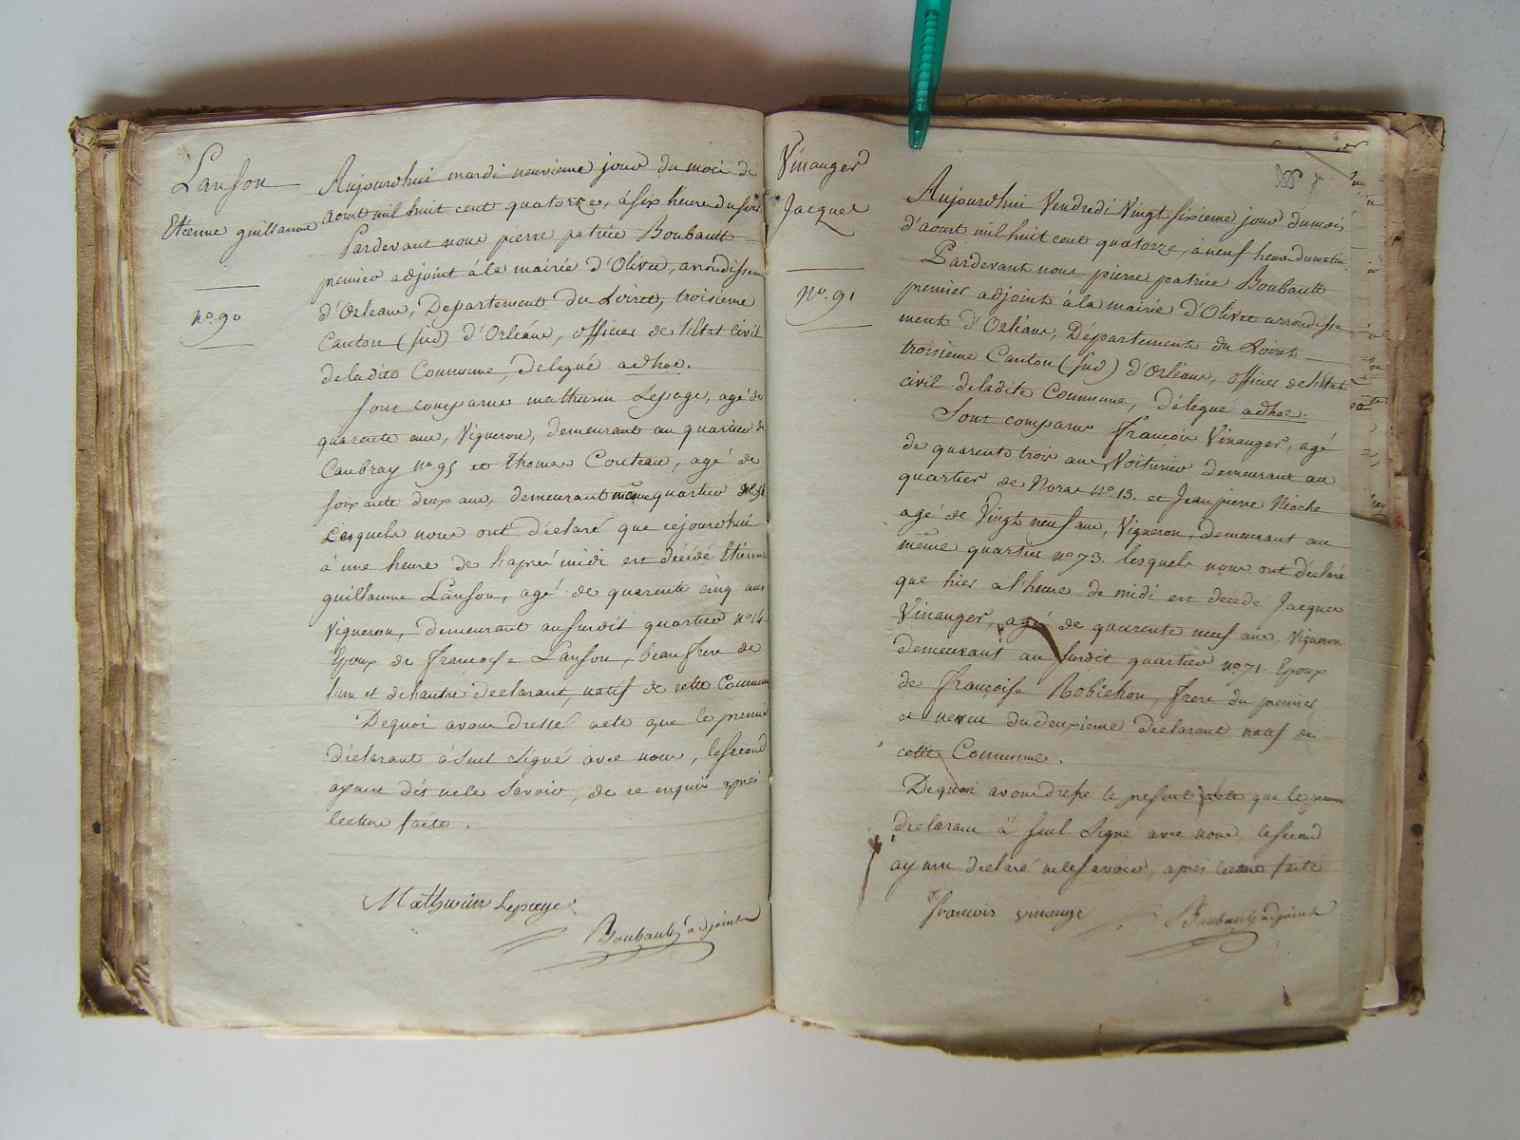 Lanson
Etienne guillaume
n° 90
Aujourdhui mardi neuvieme jour du mois de
aout mil huit cent quatorze, à six heure du soir
Pardevant nous pierre patrice Boubault
premier adjoint à la mairie d'Olivet, arrondissem
d'Orleans, Departement du Loiret, troisieme
Canton (sud) d'Orléans, officier de l'état civil
de ladite Commune, delegué adhoc.
sont comparus mathurin Lepage, agé de
quarante ans, Vigneron, demeurant au quartier de
Caubray n° 95 et thomas Couteau, agé de
soixante deux ans, demeurant même quartier
Lesquels nous ont déclaré que cejourdhui
à une heure de l'après midi est décédé Etienne
guillaume Lanson, agé de quarente cinq ans
Vigneron, demeurant au susdit quartier n° 14
Epoux de françoise Lanson, beau frere de
lun et de lautre declarant, natif de cette Commune
Dequoi avons dressé acte que le premier
déclarant à seul signé avec nous, le second
ayant dé ne le savoir, de ce enquis après
lecture faite.
Mathurin Lepage
Boubault adjoint
Vinauger
Jacques
N° 91
Aujourdhui Vendredi Vingt sixieme jour du mois
d'aout mil huit cent quatorze, à neuf heure du matin
Pardevant nous pierre patrice Boubault
premier adjoint à la mairie d'Olivet arrondisse
ment d'Orléans, Département du Loiret
troisieme Canton (sud) d'Orléans, officier de l'état
civil de ladite Commune, délégué adhoc.
Sont comparus françois Vinauger, agé
de quarente trois ans Voiturier demeurant au
quartier de N° 13. et Jean pierre
agé de Vingt neuf ans, Vigneron, demeurant au
même quartier n° 73. lesquels nous ont déclaré
que hier a l'heure de midi est decédé Jacques
Vinauger, agé de quarente neuf ans, Vigneron
demeurant au susdit quartier n° 71. Epoux
de françoise Robichon, frere du premier
et neveu du deuxieme déclarant natif de
cette Commune.
Dequoi avons dressé le présent acte que le
declarant à seul signé avec nous, le second
ayant declaré ne le savoir, après lecture faite
francois vinauge
Boubault adjoint